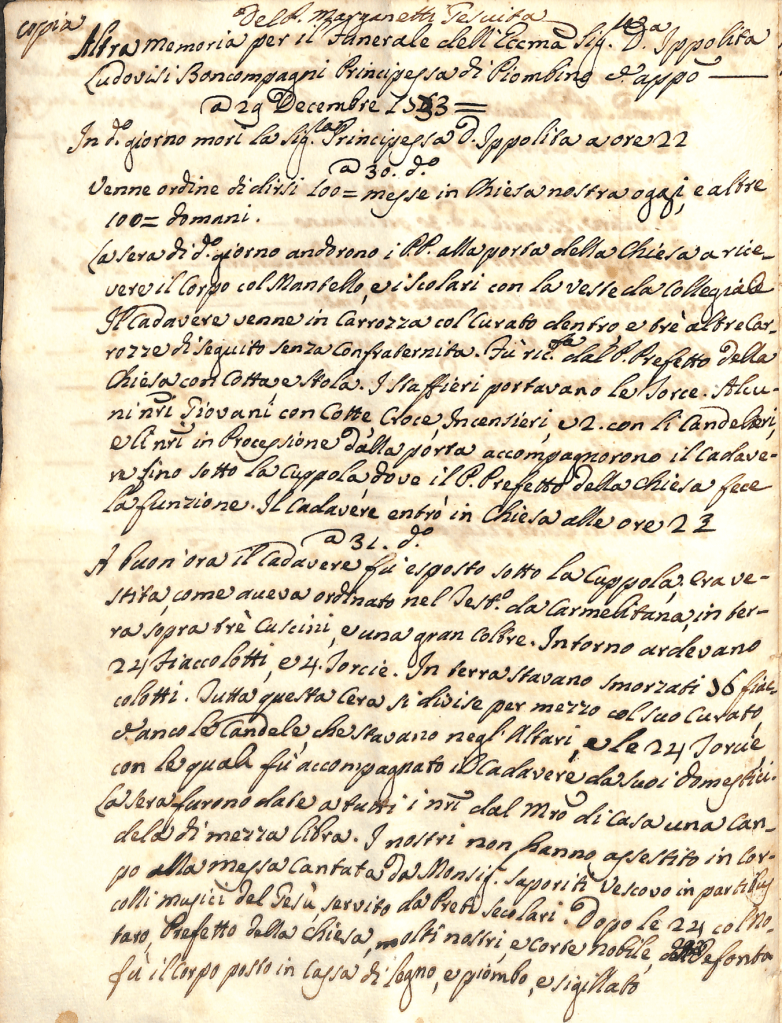 copia
Del P. Marganetti Gesuita
Altra memoria per il Funerale dell'Eccma Sig.ra D.a Ippolita
Ludovisi Boncompagni Principessa di Piombino &.appo
a 29 Decembre 1733 =
In d.o giorno morì la Sig.ra Principessa D. Ippolita a ore 22
a 30. d.o
Venne ordine di dirsi 100= messe in Chiesa nostra oggi, e altre
100= domani.
La sera di d.o giorno andorono i PP. alla porta della Chiesa a rice-
vere il Corpo col Mantello, e i scolari con la veste da Collegiale
Il Cadavere venne in Carrozza col Curato dentro, e trè altre Car-
rozze di seguito senza Confraternita. Fù ric. dal P. Prefetto della
Chiesa con Cotta e stola. I staffieri portavano le Torce. Alcu-
ni nri Giovani con Cotte, Croce, Incensieri, e 2. con li Candelieri,
e li nri in Processione dalla porta accompagnorono il Cadave-
re fino sotto la Cuppola, dove il P. Prefetto della Chiesa fece
la funzione. Il Cadavere entrò in Chiesa alle ore 23
a 31. d.o
A buon'ora il Cadavere fù esposto sotto la Cuppola, era ve-
stita, come aveva ordinato nel Test.o da Carmelitana, in ter-
ra sopra trè Cuscini, e una gran Coltre. Intorno ardevano
24 Fiaccolotti, e 4. Torcie. In terra stavano smorzati 36 fiac
colotti. Tutta questa Cera si divise per mezzo col suo Curato,
& anco le Candele che stavano negl'Altari, e le 24 Torcie,
con le quali fù accompagnato il Cadavere da suoi domestici.
La sera furono date a tutti i nri dal Mro di Casa una Can-
dela di mezza libra. I nostri non hanno assestito in Cor-
po alla messa Cantata da Monsig. Saporiti Vescovo in partibus
colli musici del Gesù, servito da Preti secolari. Dopo le 24 col No-
taro, Prefetto della Chiesa, molti nostri, e Corte nobile, Defonta
fù il Corpo posto in Cassa di legno, e piombo, e sigillato